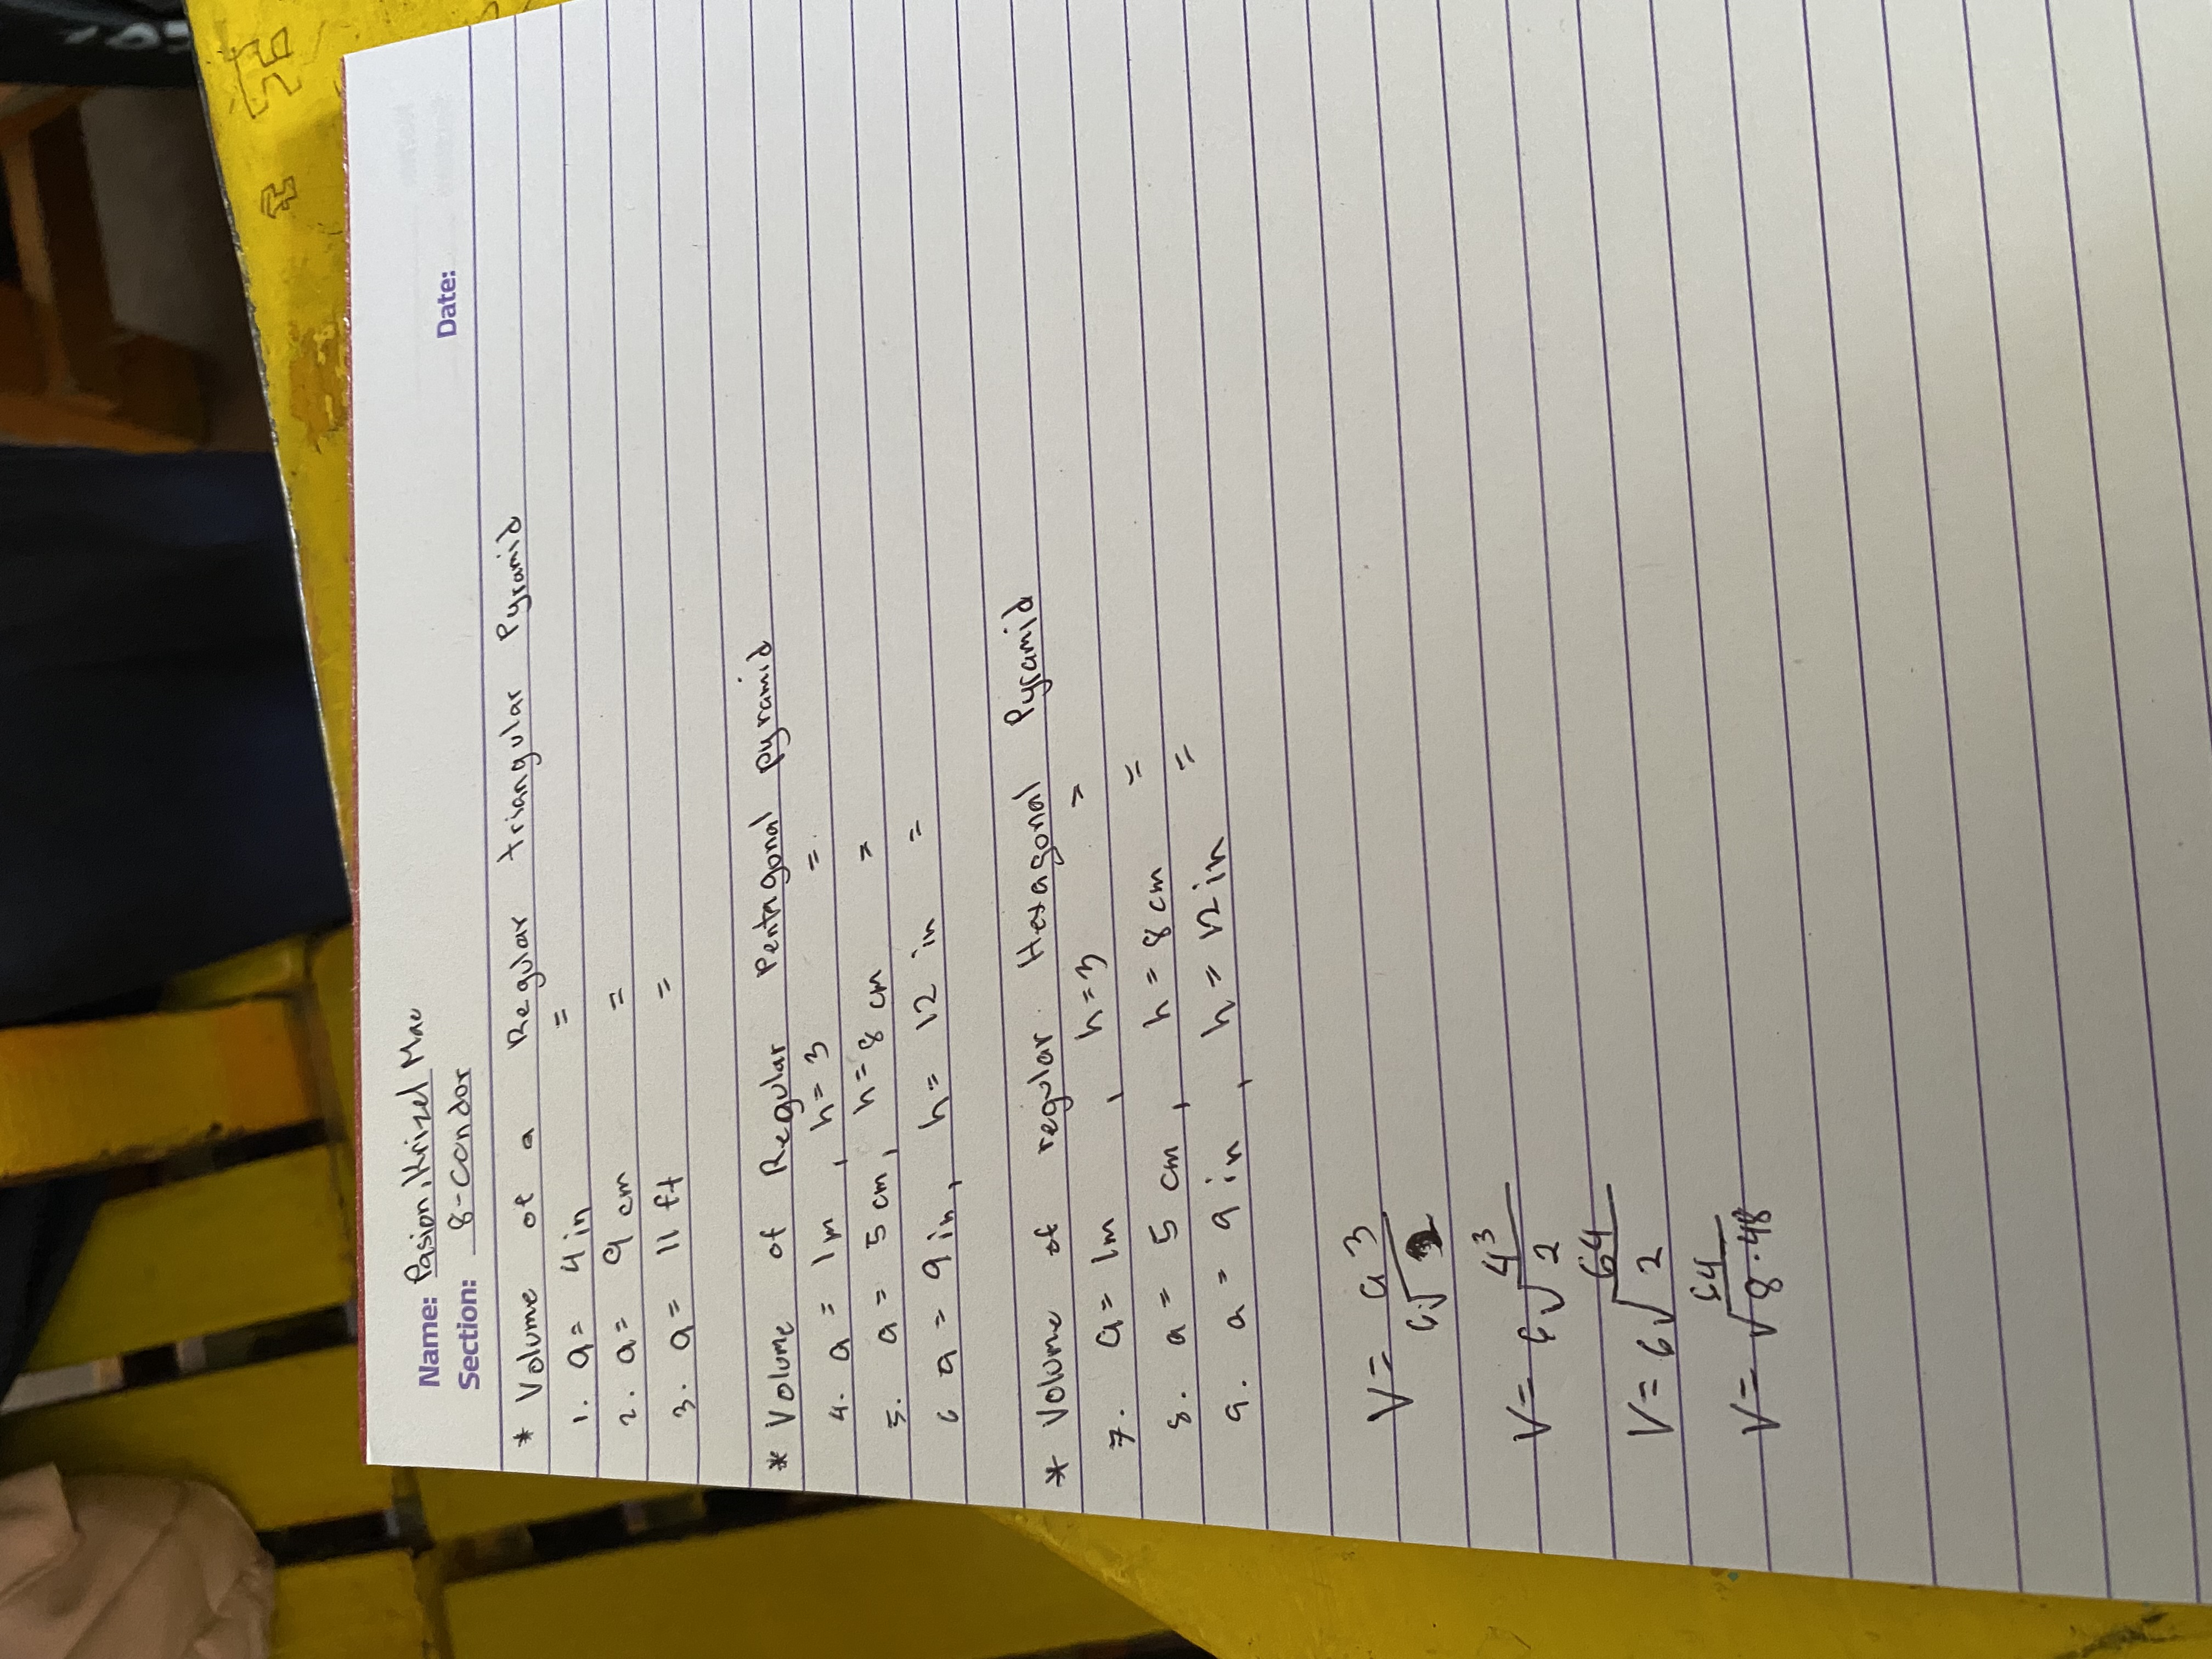 Name: Pasion, Krizel Mae
Section: 8-condor
Date:
* Volume of a Regular triangular Pyramid
1. a= 4 in =
2. a= 9 cm =
3. a= 11 ft =
* Volume of Regular Pentagonal pyramid
4. a = 1m , h= 3 =
5. a = 5 cm, h= 8 cm =
6 a = 9 in, h= 12 in =
* Volume of regular Hexagonal Pyramid
7. a= 1m , h=3 =
8. a= 5 cm , h = 8 cm =
9. a= 9 in , h = 12 in =
V= a3
6√
V= 4³
6√2
V= 64
6√2
V= 64
√8.48